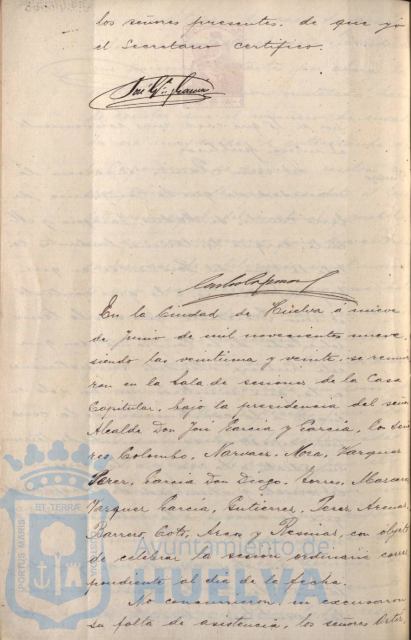 los señores presentes. de que yo
el Secretario certifico.
José Mª García
En la Ciudad de Huelva a nueve
de Junio de mil novecientos nueve
siendo las veintiuna y veinte, se reunie
ron en la Sala de sesiones de la Casa
Capitular, bajo la presidencia del señor
Alcalde Don José García y García, los Seño
res, Colombo, Narvaez, Mora, Vazquez
Perez, García Don Diego, Torres, Marcano
Vazquez García, Gutierrez, Perez
Barrero, Coto, y con objeto
de celebrar la sesion ordinaria corres
pondiente al dia de la fecha.
No concurrieron, ni excusaron
su falta de asistencia, los señores
PORTUS MARIS
ET TERRÆ
Ayuntamiento de
HUELVA